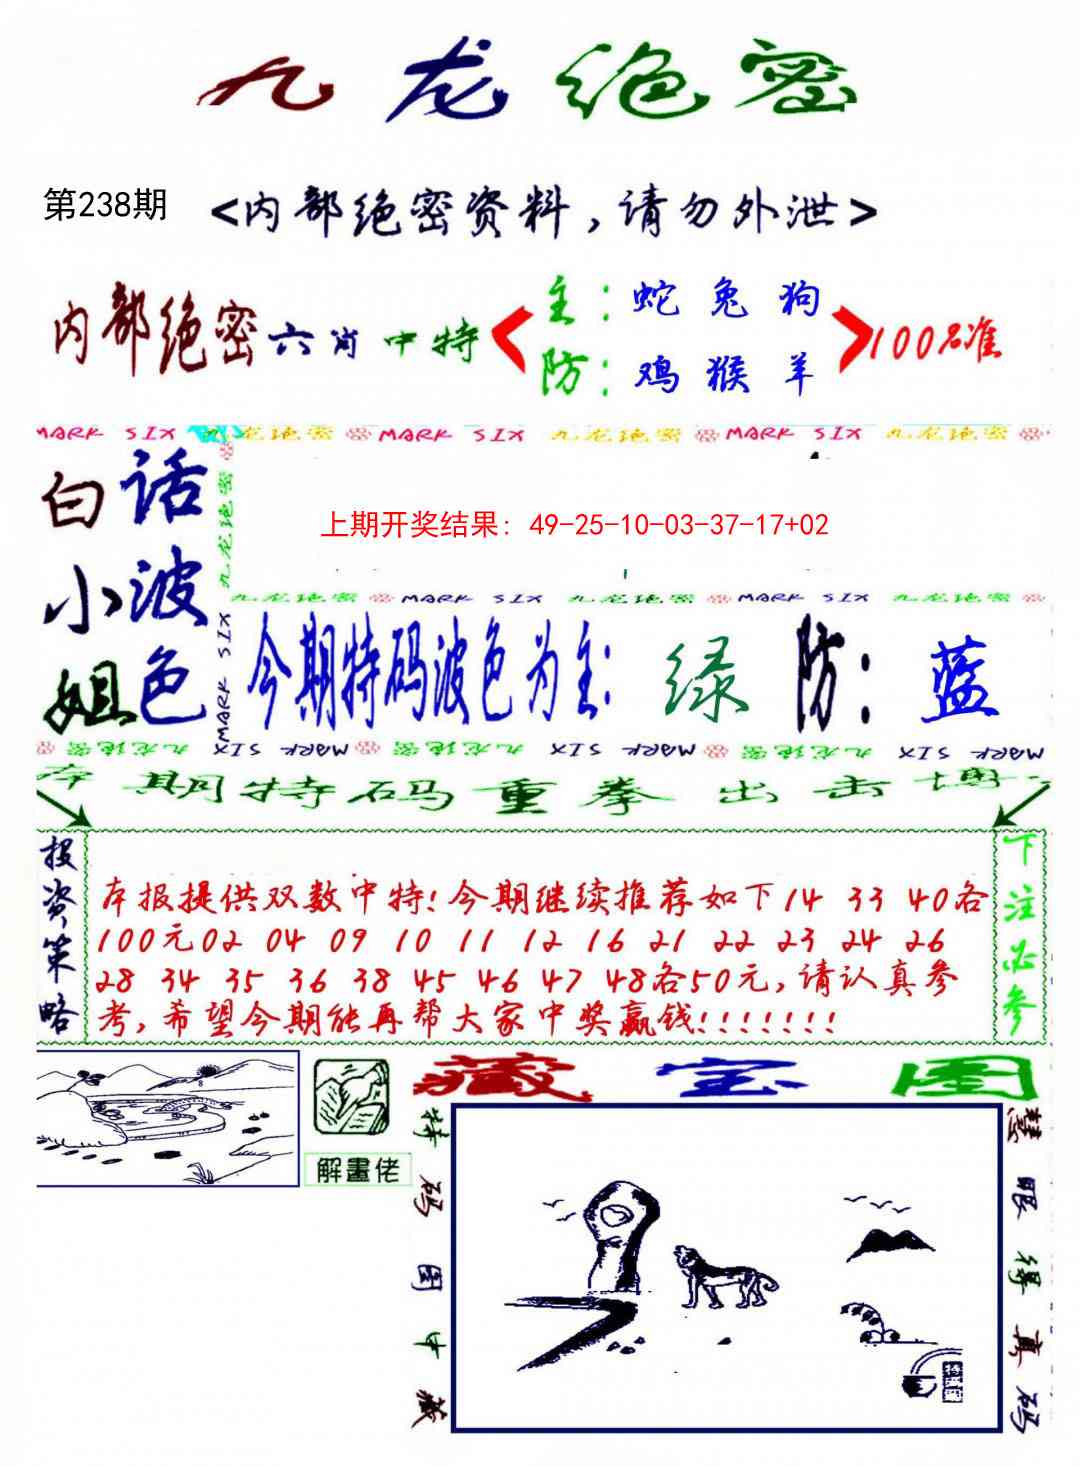 九龙绝密
第238期
<内部绝密资料，请勿外泄>
内部绝密六肖中特
主：蛇 兔 狗
防：鸡 猴 羊
100%准
MARK SIX 九龙绝密 MARK SIX 九龙绝密 MARK SIX 九龙绝密
白小姐
话波色
九龙绝密 MARK SIX
上期开奖结果：49-25-10-03-37-17+02
九龙绝密 MARK SIX 九龙绝密 MARK SIX 九龙绝密
今期特码波色为主：绿 防：蓝
九龙绝密 MARK SIX 九龙绝密 MARK SIX 九龙绝密 MARK SIX
本期特码重拳出击博
投资策略
本报提供双数中特!今期继续推荐如下14 33 40各
100元02 04 09 10 11 12 16 21 22 23 24 26
28 34 35 36 38 45 46 47 48各50元,请认真参
考,希望今期能再帮大家中奖赢钱!!!!!!!
下注必参
解畫佬
藏宝图
特码图中藏
慧眼得真码